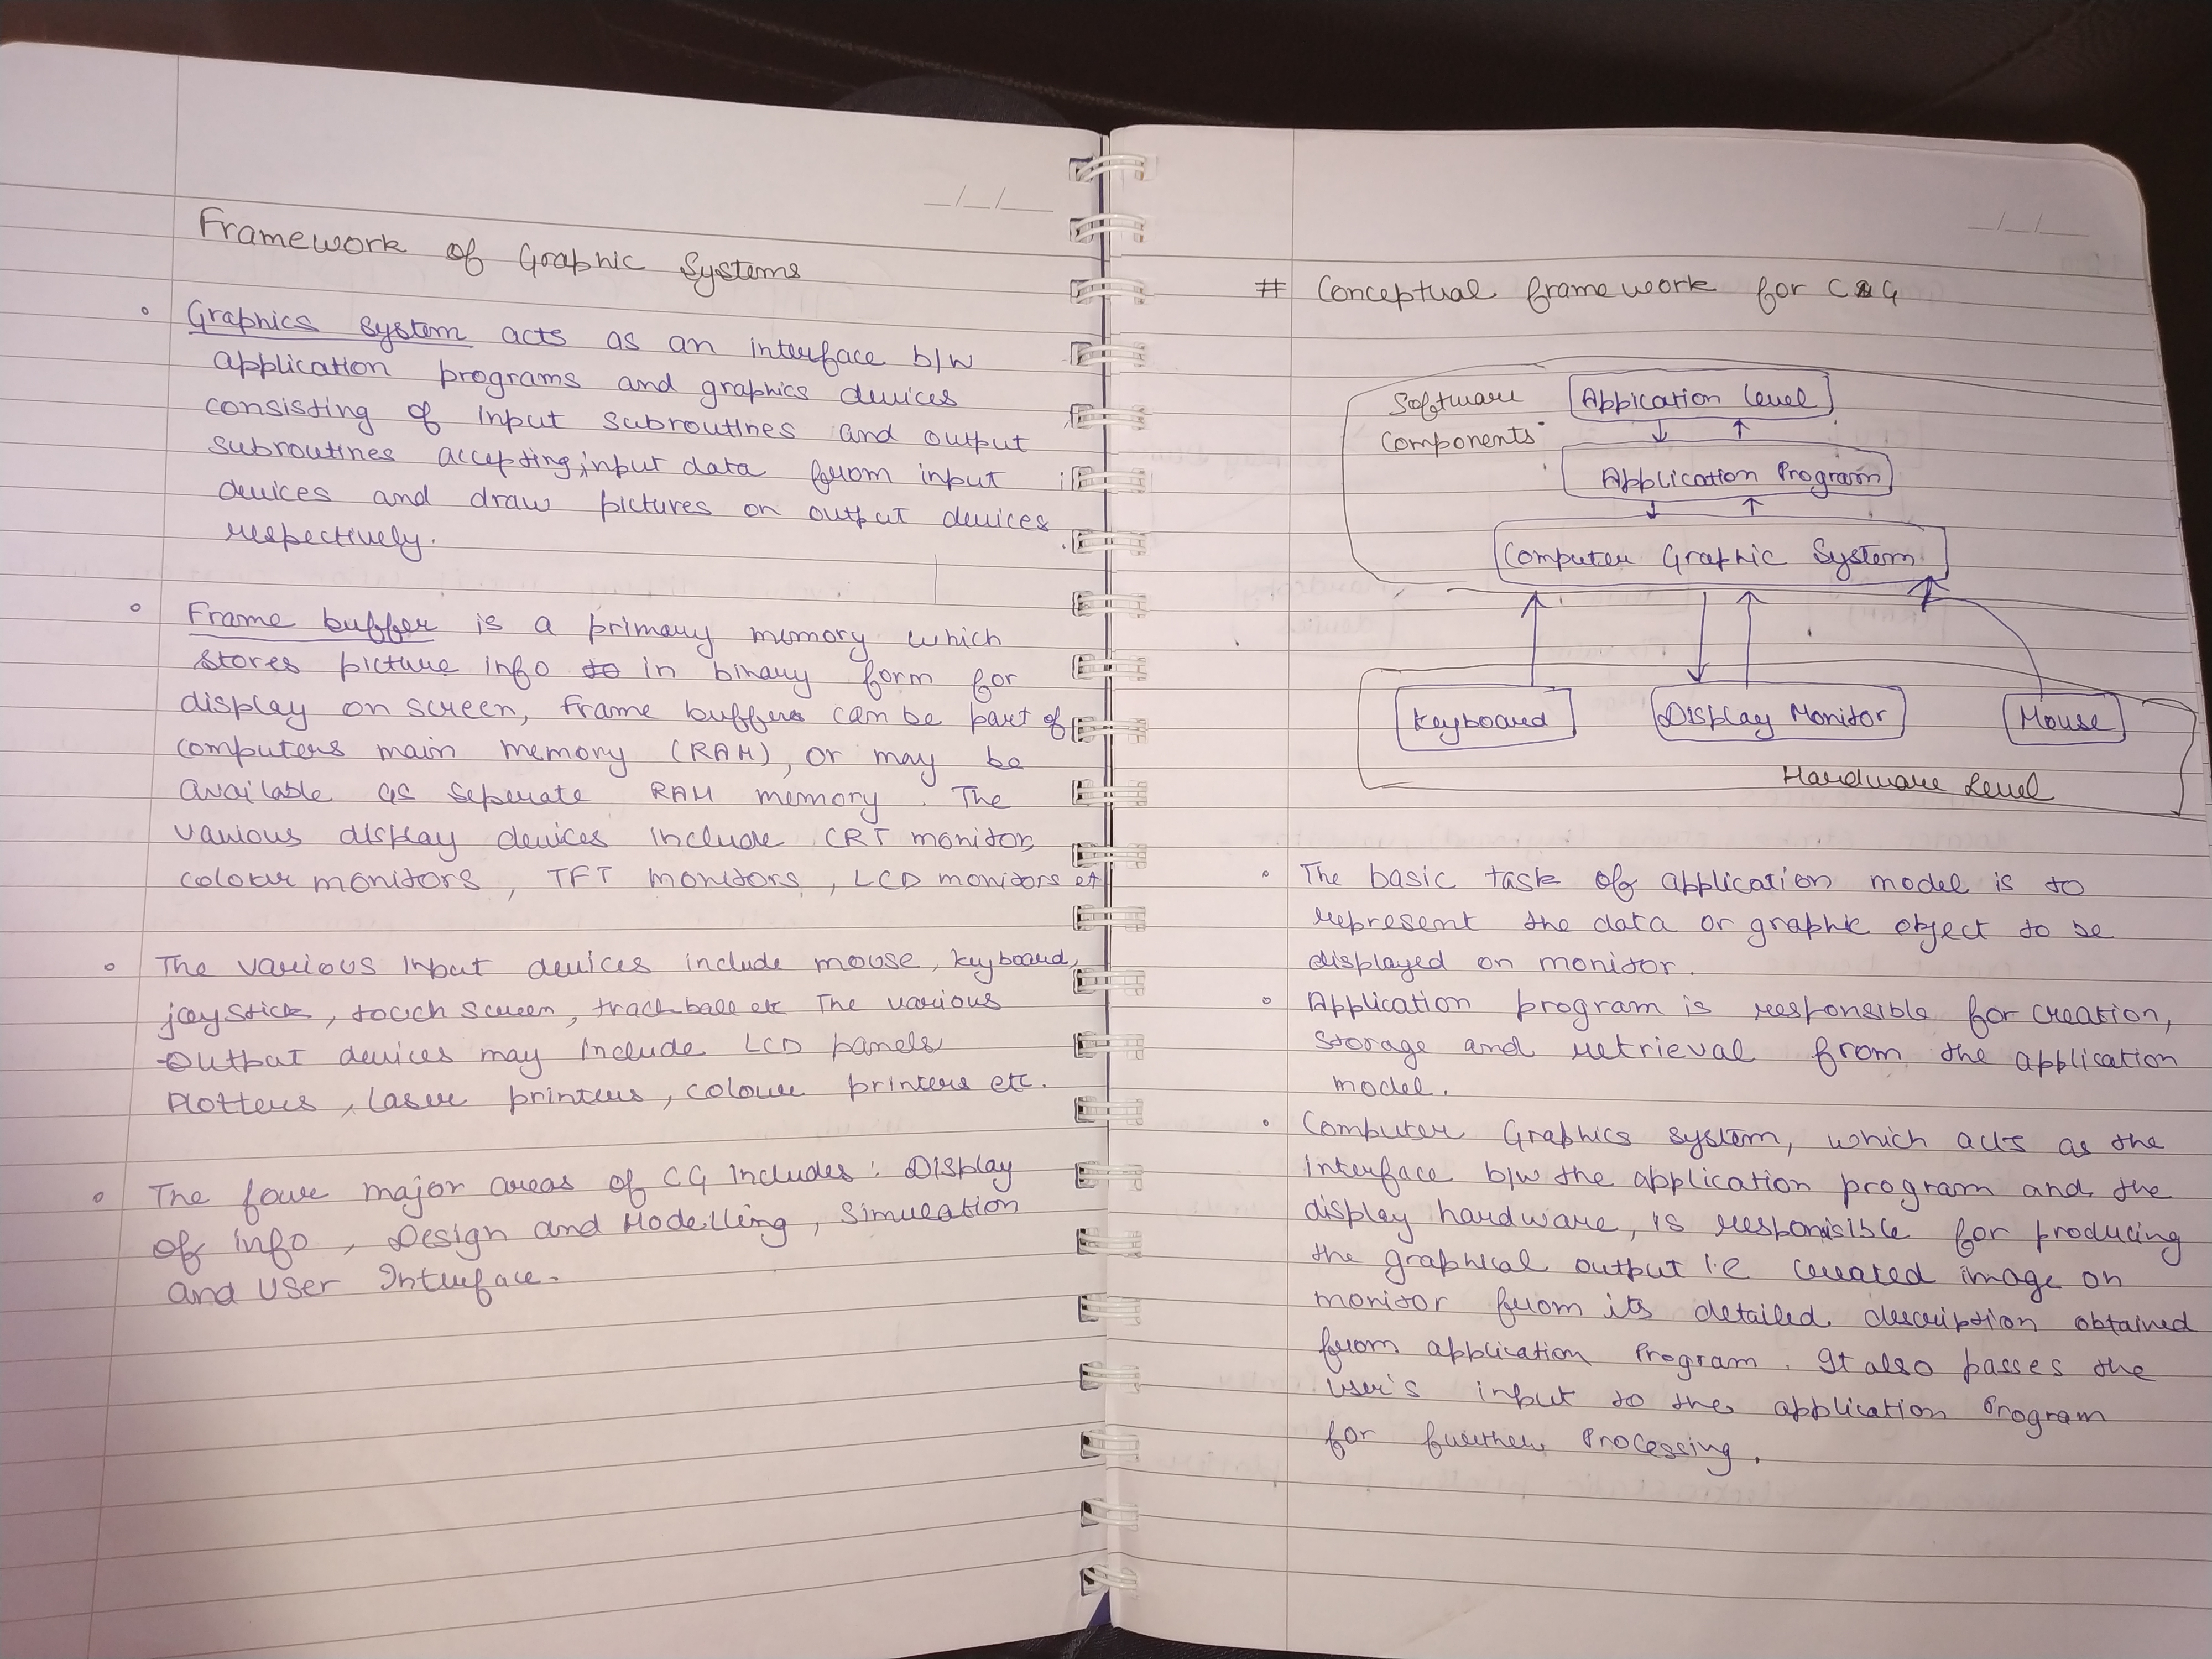 Framework of Graphic Systems
Graphics system acts as an interface b/w
application programs and graphics devices
consisting of input subroutines and output
subroutines accepting input data from input
devices and draw pictures on output devices
respectively.
Frame buffer is a primary memory which
stores picture info to in binary form for
display on screen, frame buffers can be part of
computers main memory (RAM), or may be
available as seperate RAM memory. The
various display devices include CRT monitor,
colour monitors, TFT monitors, LCD monitors et
The various input devices include mouse, keyboard,
joystick, touch screen, trackball etc The various
output devices may include LCD panels
Plotters, laser printers, colour printers etc.
The four major areas of CG includes: Display
of info, Design and Modelling, Simulation
and User Interface.
# Conceptual framework for CG
Software
Components
Appication level
Application Program
Computer Graphic System
Keyboard
Display Monitor
Mouse
Hardware Level
The basic task of application model is to
represent the data or graphic object to be
displayed on monitor.
Application program is responsible for creation,
storage and retrieval from the application
model.
Computer Graphics system, which acts as the
interface b/w the application program and the
display hardware, is responsible for producing
the graphical output i.e created image on
monitor from its detailed description obtained
from application Program. It also passes the
user's input to the application Program
for further Processing.